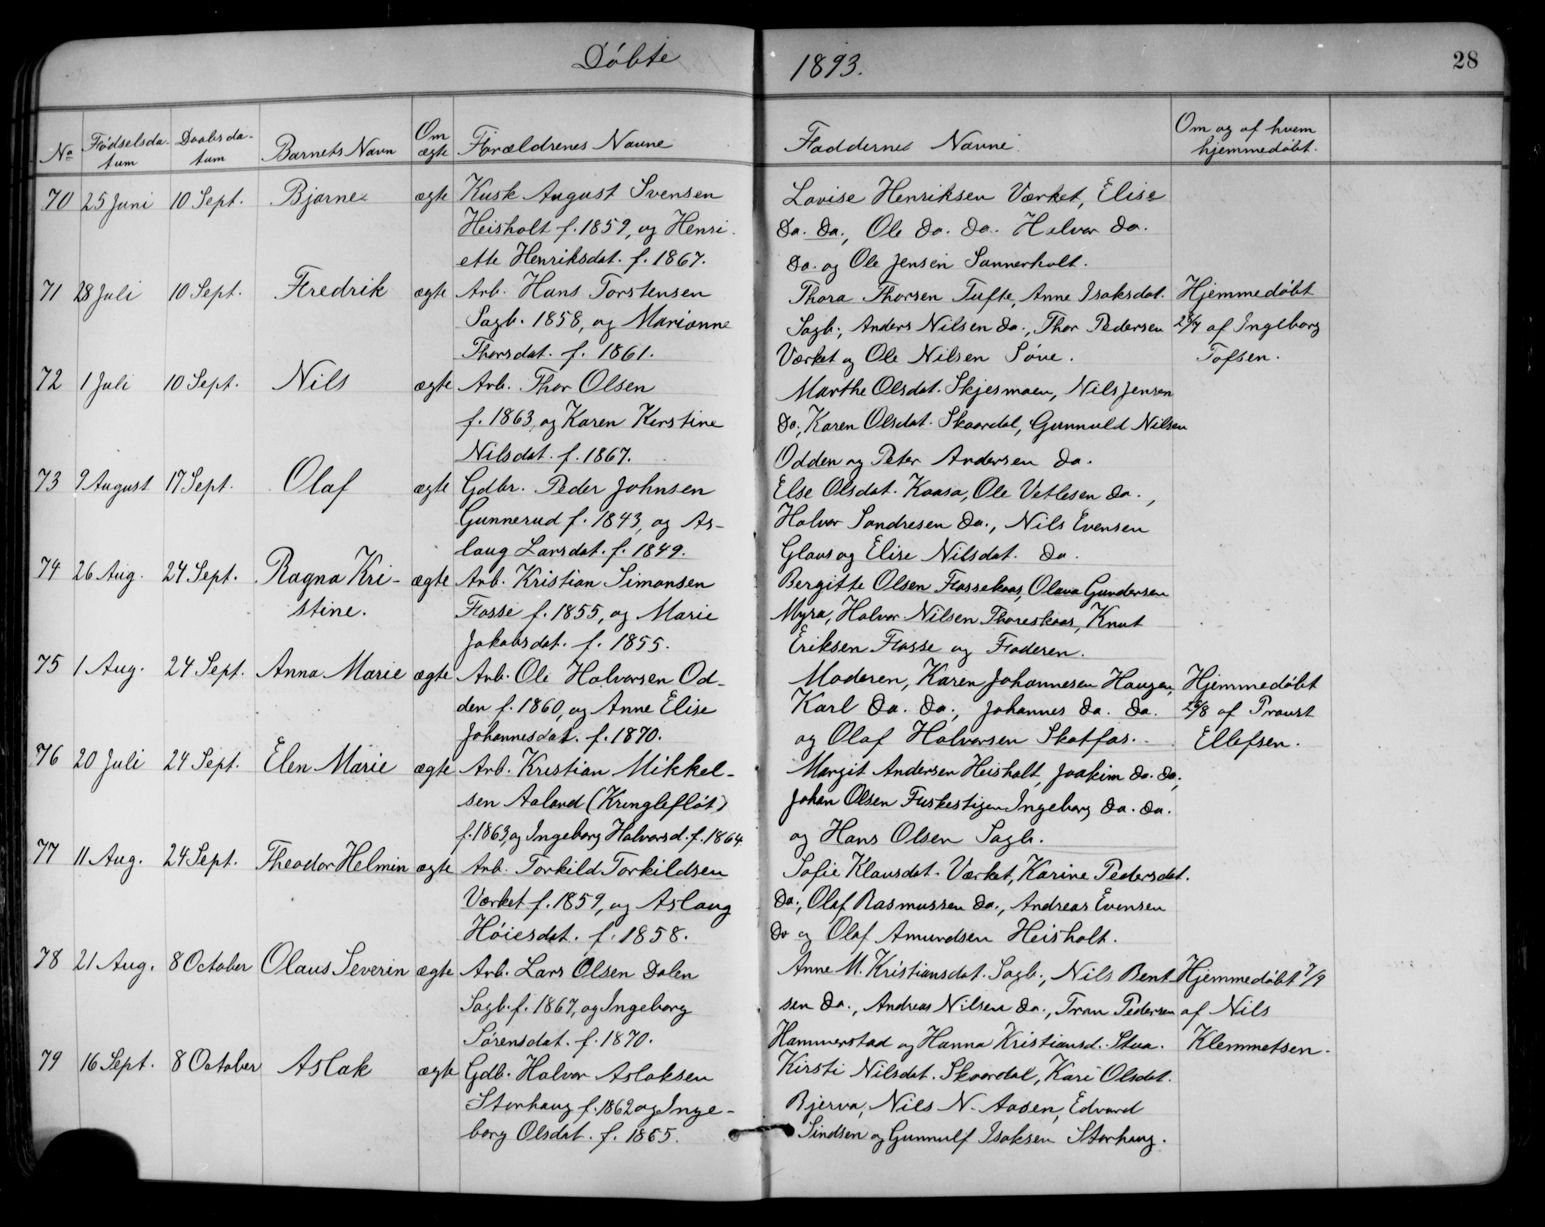 Døbte 1893. 28
No Fødselsda- tum Daabsda- tum Barnets Navn Om ægte Forældrenes Navne Faddernes Navne Om og af hvem hjemmedøbt.
70 25 Juni 10 Sept. Bjarne ægte Kusk August Svensen Lovise Henriksen Værket, Elise
Heisholt f. 1859, og Henri- Do. Do., Ole Do. Do. Halvor Do.
ette Henriksdat. f. 1867. Do. og Ole Jensen Sannerholt.
71 28 Juli 10 Sept. Fredrik ægte Arb. Hans Torstensen Thora Thorsen Tufte, Anne Isaksdat. Hjemmedøbt
Sagb. 1858, og Marianne Sagb., Anders Nilsen Do., Thor Pedersen af Ingeborg
Thorsdat. f. 1861. Værket og Ole Nilsen Søve. Tofsen.
72 1 Juli 10 Sept. Nils ægte Arb. Thor Olsen Marthe Olsdat. Skjesmoen, Nils Jensen
f. 1863, og Karen Kirstine Do., Karen Olsdat. Skaardal, Gunnuld Nilsen
Nilsdat. f. 1867. Odden og Peter Andersen Do.
73 9 August 17 Sept. Olaf ægte Gdbr. Peder Johnsen Else Olsdat. Kaasa, Ole Vetlesen Do.,
Gunnerud f. 1843, og As- Halvor Sondresen Do., Nils Evensen
laug Larsdat. f. 1849. Glaus og Elise Nilsdat. Do.
74 26 Aug. 24 Sept. Ragna Kri- ægte Arb. Kristian Simonsen Bergitte Olsen Fossekaas, Olava Gundersen
stine. Fosse f. 1855, og Marie Myra, Halvor Nilsen Thoreskaas, Knut
Jakobsdat. f. 1855. Eriksen Fosse og Faderen.
75 1 Aug. 24 Sept. Anna Marie ægte Arb. Ole Halvorsen Od- Moderen, Karen Johannesen Haugen, Hjemmedøbt
den f. 1860, og Anne Elise Karl Do. Do., Johannes Do. Do. af Provst
Johannesdat. f. 1870. og Olaf Halvorsen Skotfos. Ellefsen.
76 20 Juli 24 Sept. Elen Marie ægte Arb. Kristian Mikkel- Margit Andersen Heisholt, Joakim Do. Do.,
sen Aaland (Kringlefløt) Johan Olsen Fuskestigen Ingeborg Do. Do.
f. 1863, og Ingeborg Halvorsd. f. 1864 og Hans Olsen Sagb.
77 11 Aug. 24 Sept. Theodor Helmin ægte Arb. Torkild Torkildsen Sofie Klausdat. Værket, Karine Pedersdat.
Værket f. 1859, og Aslaug Do., Olaf Rasmussen Do., Andreas Evensen
Høiesdat. f. 1858. Do og Olaf Amundsen Heisholt.
78 21 Aug. 8 October Olaus Severin ægte Arb. Lars Olsen Dalen Anne M. Kristiansdat. Sagb., Nils Bent- Hjemmedøbt 7/9
Sagb. f. 1867, og Ingeborg sen Do., Andreas Nilsen Do., Tron Pedersen af Nils
Sørensdat. f. 1870. Hammerstad og Hanna Kristiansd. Stua. Klemmetsen.
79 16 Sept. 8 October Aslak ægte Gdb. Halvor Aslaksen Kirsti Nilsdat. Skaardal, Kari Olsdat.
Storhaug f. 1862 og Inge- Bjerva, Nils N. Aasen, Edvard
borg Olsdat. f. 1865. Sindsen og Gunnulf Isaksen Storhaug.